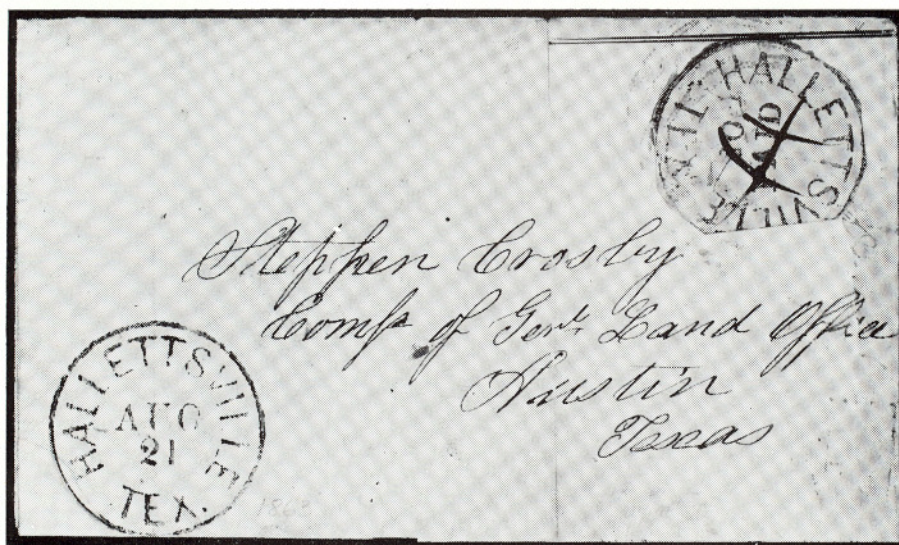 HALLETTSVILLE TEX.
PAID
10
Stephen Crosby
Comr of Genl. Land Office
Austin
Texas
HALLETTSVILLE
AUG
21
TEX.
1863